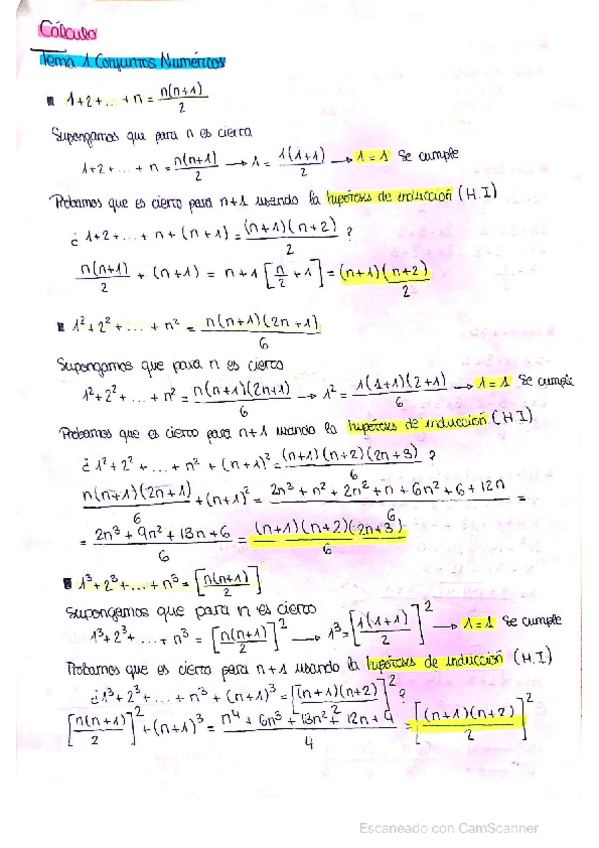 Cálculo
Tema 1 Conjuntos Numéricos
1+2+...+n = n(n+1)/2
Supongamos que para n es cierto
1+2+...+n = n(n+1)/2 → 1 = 1(1+1)/2 → 1=1 Se cumple
Probamos que es cierto para n+1 usando la hipótesis de inducción (H.I)
¿ 1+2+...+n+(n+1) = (n+1)(n+2)/2 ?
n(n+1)/2 + (n+1) = n+1 [n/2 + 1] = (n+1)(n+2)/2
1²+2²+...+n² = n(n+1)(2n+1)/6
Supongamos que para n es cierto
1²+2²+...+n² = n(n+1)(2n+1)/6 → 1² = 1(1+1)(2+1)/6 → 1=1 Se cumple
Probamos que es cierto para n+1 usando la hipótesis de inducción (H.I)
¿ 1²+2²+...+n²+(n+1)² = (n+1)(n+2)(2n+3)/6 ?
n(n+1)(2n+1)/6 + (n+1)² = 2n³+n²+2n²+n+6n²+6+12n/6 =
= 2n³+9n²+13n+6/6 = (n+1)(n+2)(2n+3)/6
1³+2³+...+n³ = [n(n+1)/2]
Supongamos que para n es cierto
1³+2³+...+n³ = [n(n+1)/2]² → 1³ = [1(1+1)/2]² → 1=1 Se cumple
Probamos que es cierto para n+1 usando la hipótesis de inducción (H.I)
¿ 1³+2³+...+n³+(n+1)³ = [(n+1)(n+2)/2]² ?
[n(n+1)/2]² + (n+1)³ = n⁴+6n³+13n²+12n+4/4 = [(n+1)(n+2)/2]²
Escaneado con CamScanner